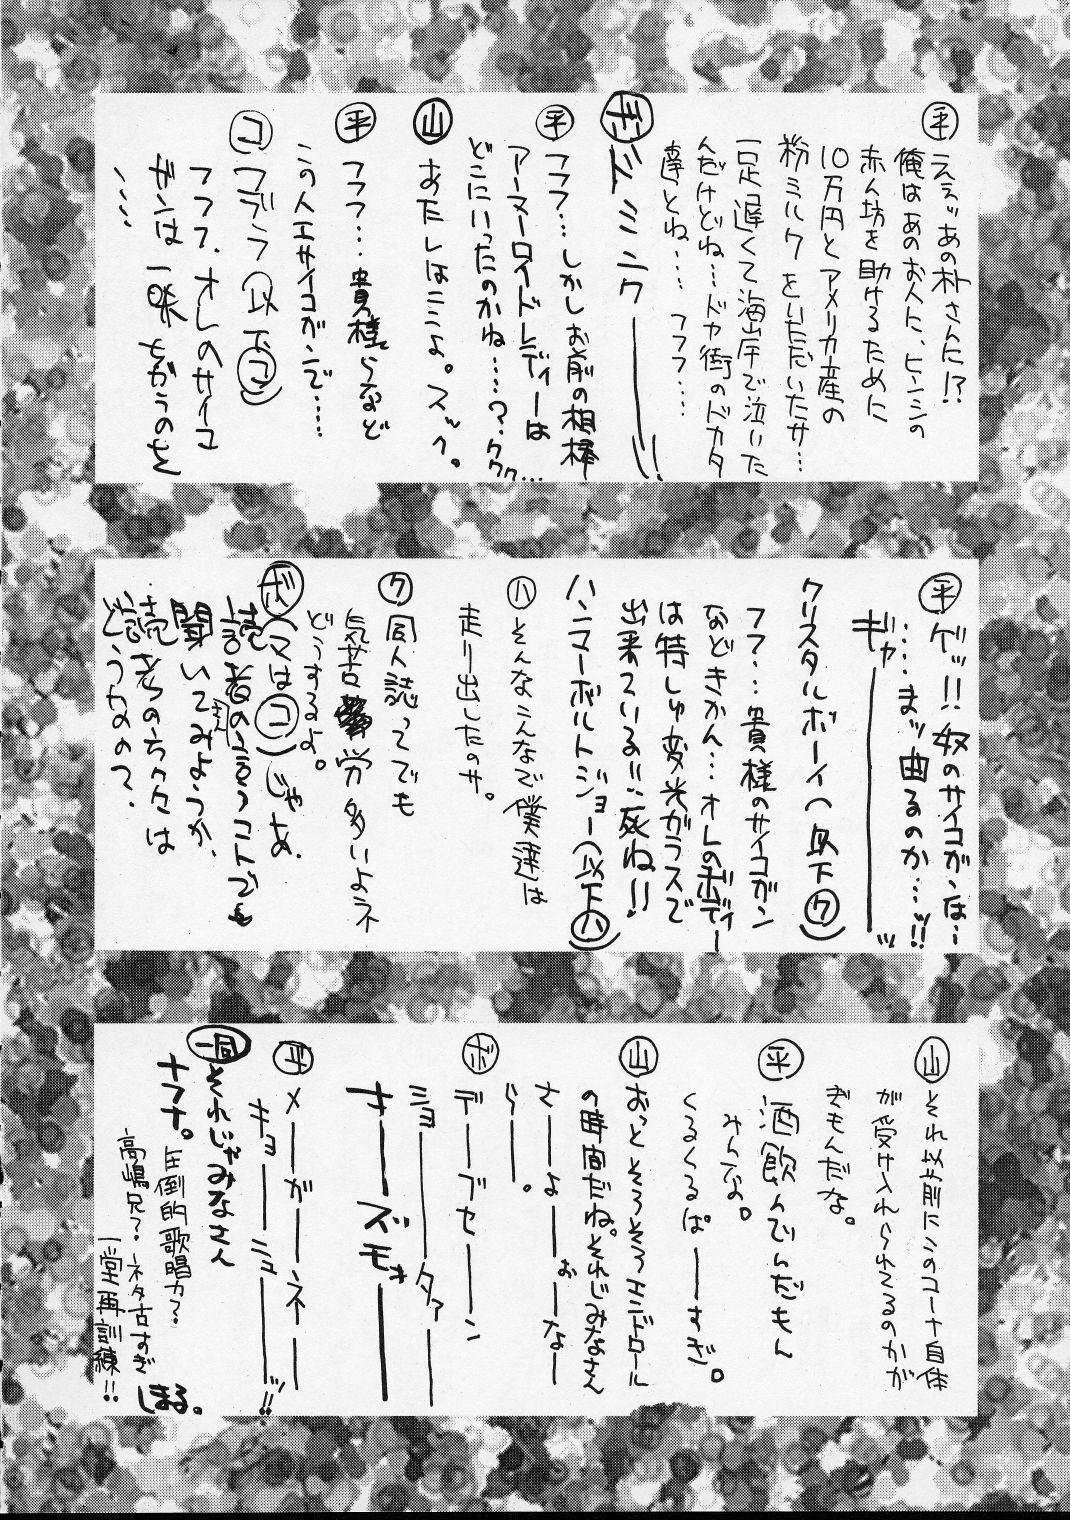 平 ええッあの朴さんに!?
俺はあのお人に、ヒンシの
赤ん坊を助けるために
10万円とアメリカ産の
粉ミルクをいただいたサ…
一足遅くて海岸で泣いた
んだけどね…ドヤ街のドカタ
達とね…… フフフ……
ボ ドミニク――――!!
平 フフフ…しかしお前の相棒
アーマーロイドレディーは
どこにいったのかね……?ククク…
山 あたしはここよ。ズベ。
平 フフフ… 貴様らなど
この人エサイコガンで……
コ コブラ(以下コ)
フフフ、オレのサイコ
ガンは一味ちがうのさ
……
平 ゲッ!!奴のサイコガンは…
……まッ曲るのか…ッ!!
ギャ――――ッ
クリスタルボーイ(以下ク)
フフ…貴様のサイコガン
などきかん…オレのボディー
は特しゅ変光ガラスで
出来ている!!死ね!!
ハンマーボルトジョー(以下ハ)
ハ そんなこんなで僕達は
走り出したのサ。
ク 同人誌ってでも
気苦労多いよネ
どうするよ。
ボ (マはコ)じゃあ、
読者の言うコトでも
聞いてみようか、
読者の方々は
どうなの?
山 それ以前にこのコーナ自体
が受け入れられてるのかが
ぎもんだな。
平 酒飲んでんだもん
みんな。
くるくるぱ――すぎ。
山 おっとそろそろエンドロール
の時間だね。それじみなさん
さ――よ――お――な――
ら――。
ボ デ――ブセ――ン
ショ――――タァ――
オ――ズモォ――
平 メ――ガ――ネ――
キョ――ニュ――ッ!!
一同 それじゃみなさん
ナフナ。
圧倒的歌唱力?
高嶋兄?ネタ古すぎ
一堂再訓練!!
しまる。